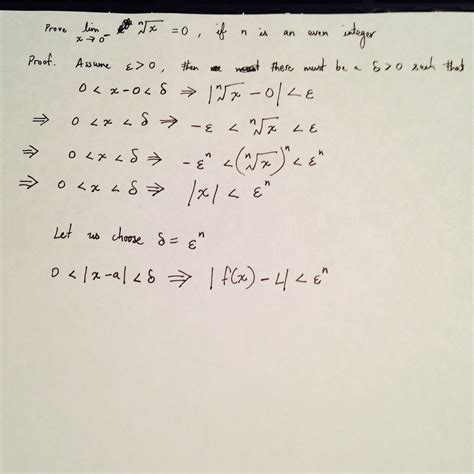 Prove lim x→0⁻ ⁿ√x = 0, if n is an even integer
Proof. Assume ε>0, then there must be a δ>0 such that
0 < x-0 < δ ⇒ |ⁿ√x - 0| < ε
⇒ 0 < x < δ ⇒ -ε < ⁿ√x < ε
⇒ 0 < x < δ ⇒ -εⁿ < (ⁿ√x)ⁿ < εⁿ
⇒ 0 < x < δ ⇒ |x| < εⁿ
Let us choose δ = εⁿ
0 < |x-a| < δ ⇒ |f(x) - L| < εⁿ